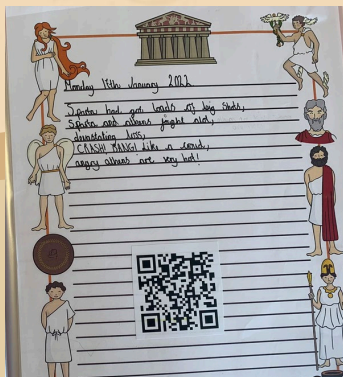 Monday 17th January 2022
Sparta had got loads of big
Sparta and athens fight alot,
devastating loss,
CRASH! BANG! Like a
angry athens are very hot!